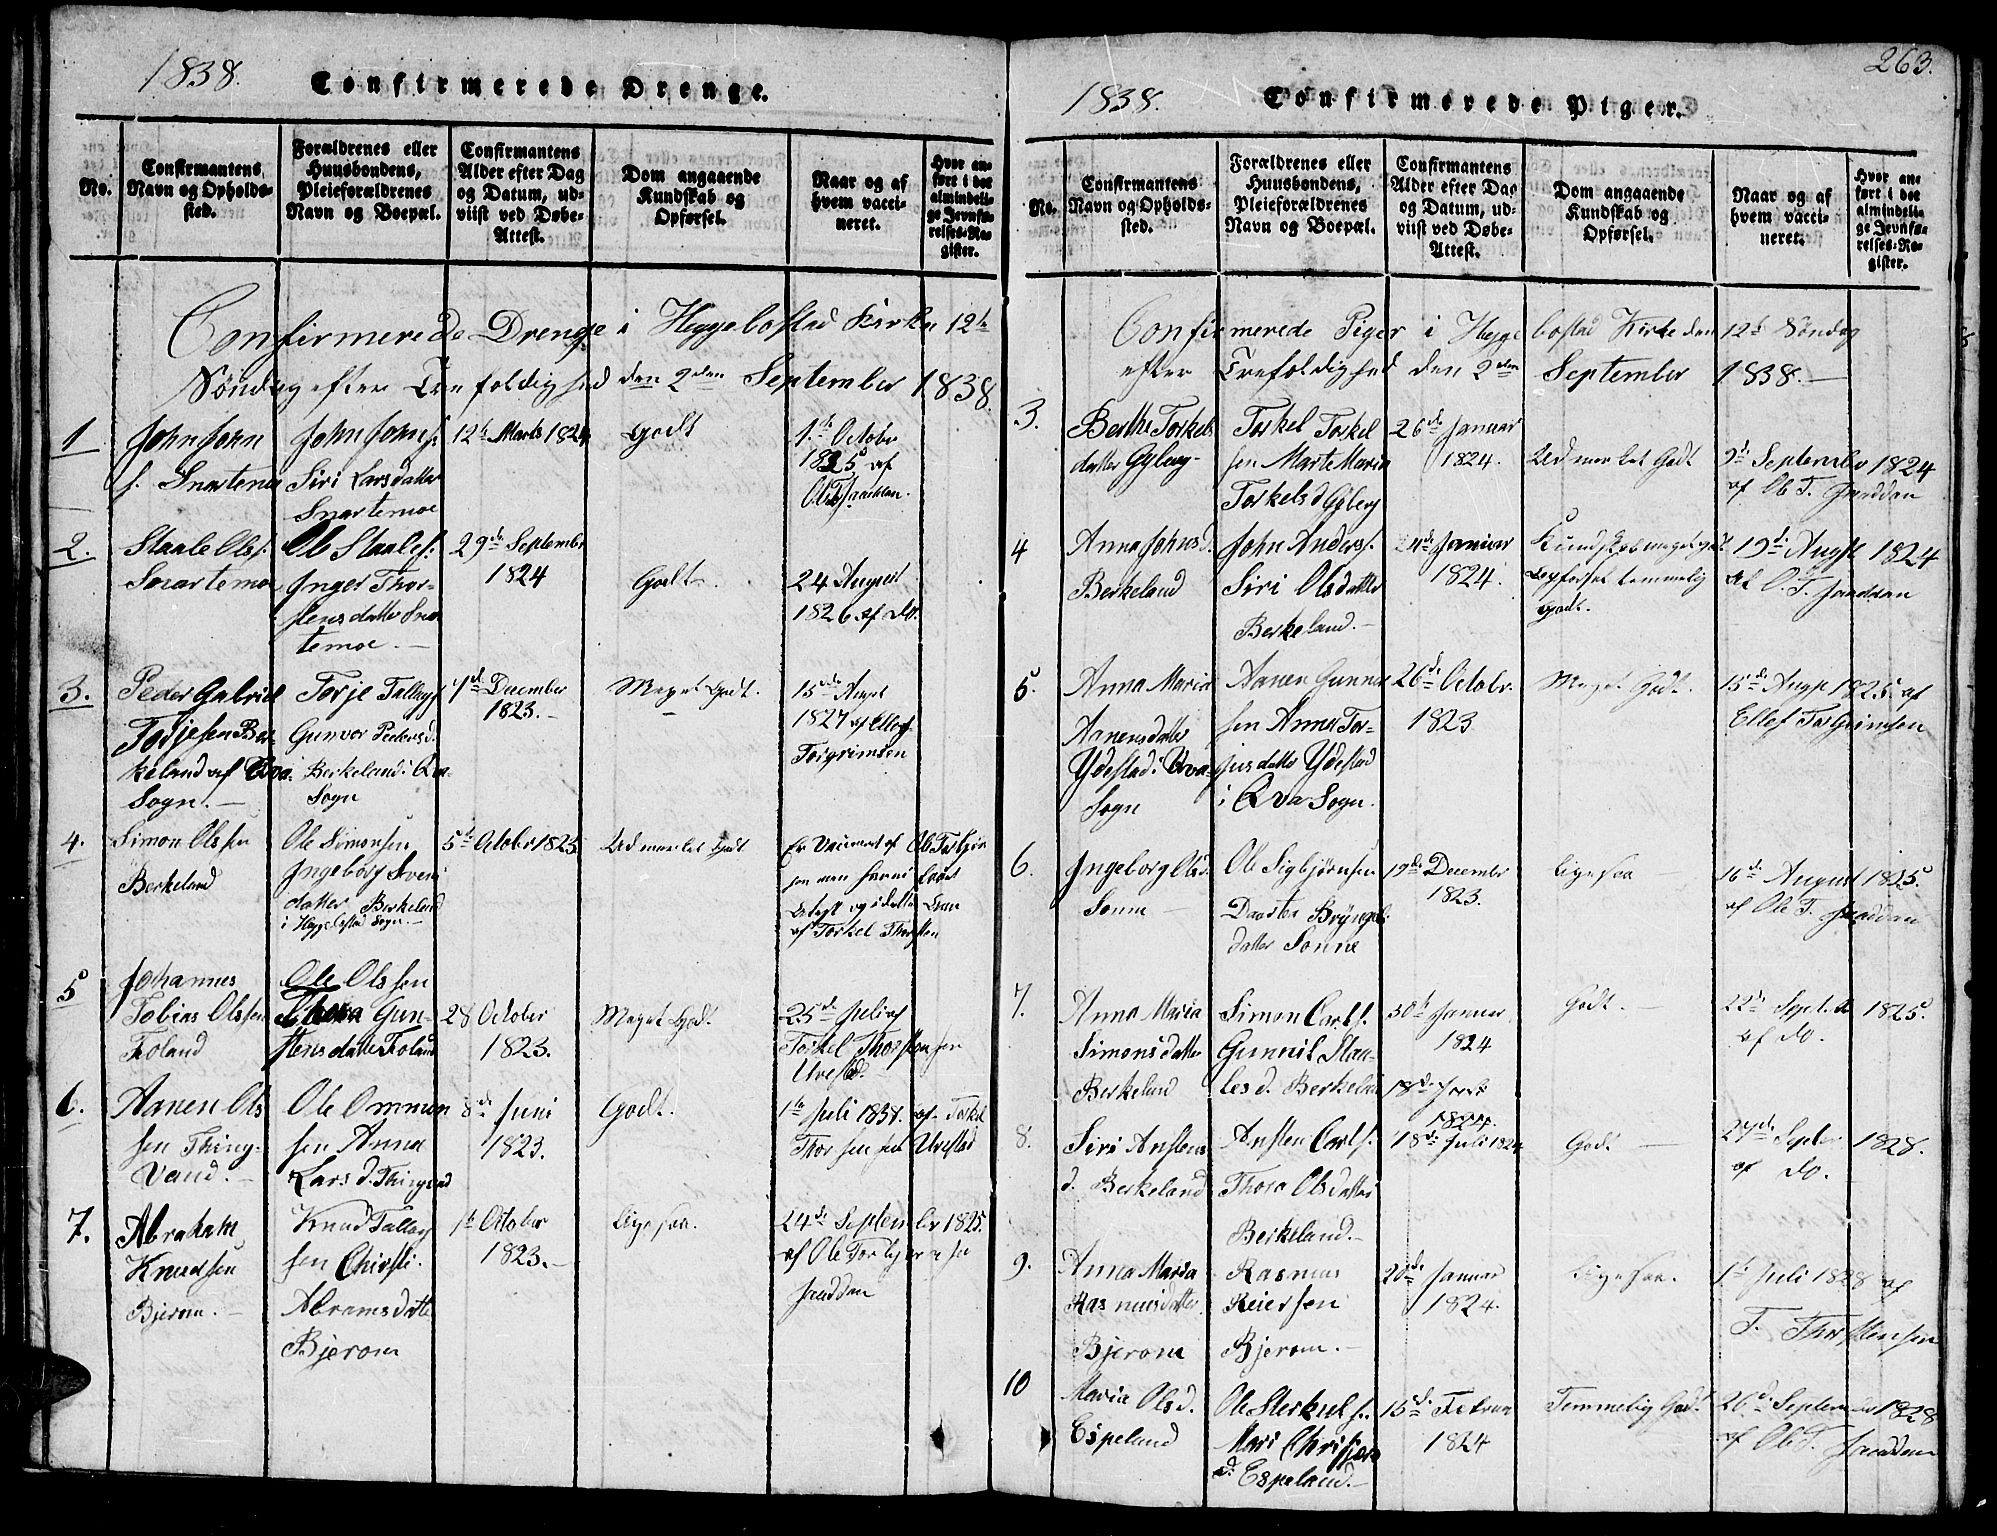 1838.
Confirmerede Drenge.
No.
Confirmantens Navn og Opholds-sted.
Forældrenes eller Huusbondens, Pleieforældrenes Navn og Boepæl.
Confirmantens Alder efter Dag og Datum, ud-viist ved Døbe-Attest.
Dom angaaende Kundskab og Opførsel.
Naar og af hvem vacci-neret.
Hvor an-ført i det almindeli-ge Jevnfø-relses-Re-gister.
Confirmerede Drenge i Heggebostad Kirke 12te
Søndag efter Trefoldighed den 2den September 1838.
1
John John
s. Snartemo
John Johns.
Siri Larsdatter
Snartemoe
12te Marts 1824
Godt
1ste October
1825 af
2.
Staale Ols.
Snartemoe
Ole Staales.
Inger Thor-
stensdatter Snar
temoe. —
29de September
1824
Godt.
24 August
1826 af do.
3.
Peder Gabriel
Torjesen Ber-
keland af Qva
Sogn. —
Torje Tallags.
Gunvor Pedersd.
Berkeland i Qva
Sogn
7de December
1823. —
Meget Godt.
15de August
1827 af Ellef
Torgrimsen
4.
Simon Olssen
Berkeland
Ole Simonsen
Ingeborg Sven
datter Berkeland
i Heggebostad Sogn —
5te October 1823
Udmærket Godt
Er Vaccineret af Ole Torbjörn
sen men
Attest og
af Torkel Thorsten
5
Johannes
Tobias Olssen
Foland
Ole Olssen
Thora Gun-
stensdatter Foland
28 October
1823.
Meget Godt.
25de Juli af
Torkel Thorstensen
Uvestad
6.
Aanen Ols
sen Thing-
vand. —
Ole Ommun
sen Anna
Lars d. Thingvand
8de Juni
1823.
Godt.
1te Juli 1837. af Torkel
Thorstensen Uvestad
7.
Abraham
Knudsen
Bjerom. —
Knud Tallag
sen Christi.
Abramsdatter
Bjerom
1te October
1823. —
Ligesaa.
24de September 1825.
af Ole Torbjörnsen
Jaaddan
263.
1838.
Confirmerede Piger.
No.
Confirmantens Navn og Opholds-sted.
Forældrenes eller Huusbondens, Pleieforældrenes Navn og Boepæl.
Confirmantens Alder efter Dag og Datum, ud-viist ved Døbe-Attest.
Dom angaaende Kundskab og Opførsel.
Naar og af hvem vacci-neret.
Hvor an-ført i det almindeli-ge Jevnfø-relses-Re-gister.
Confirmerede Piger i Heggebostad Kirke den 12te Søndag
efter Trefoldighed den 2den September 1838. —
3.
Berthe Torkels
datter Gyberg
Torkel Torkel
sen Marte Maria
Torkels d Gyberg
26de Januar
1824.
Udmærket Godt
9de September 1824
af Ole T. Jaaddan
4
Anna Johnsd.
Berkeland
John Anders.
Siri Olsdatter
Berkeland. —
24de Januar
1824.
Kundskab meget godt
Opførsel temmelig
godt.
19de August 1824
af O. T. Jaaddan
5.
Anna Maria
Aanensdatter
Ydestad i Qva
Sogn
Aanen Gunner
sen Anna Tor-
jusdatter Ydestad
i Qva Sogn.
26de October
1823
Meget Godt.
15de Aug. 1825 af
Ellef Torgrimsen
6.
Ingeborg Olsd.
Sonne
Ole Sigbjörnsen
Daarthe Bryngels
datter Sonne
19de December
1823.
Ligesaa —
16de August 1825.
af Ole T. Jaaddan
7.
Anna Maria
Simonsdatter
Berkeland
Simon Carls.
Gunnil Staa-
lesd. Berkeland
30te Januar
1824
Godt. —
22de Septb. 1825.
af do.
18de
1824.
8.
Siri Anstens
d. Berkeland
Ansten Carls.
Thora Olsdatter
Berkeland. —
18de Juli 1824
Godt —
27de Septbr 1828.
af do
9.
Anna Maria
Rasmusdatter
Bjerom
Rasmus
Reiersen
Bjerom. —
20de Januar
1824.
Ligesaa.
1te Juli 1828 af
T. Thorstensen
10
Maria Olsd.
Espeland
Ole Sterkuls.
Mari Christjers
d. Espeland. —
15de Februar
1824
Temmelig Godt
26de September 1828
af Ole T. Jaaddan